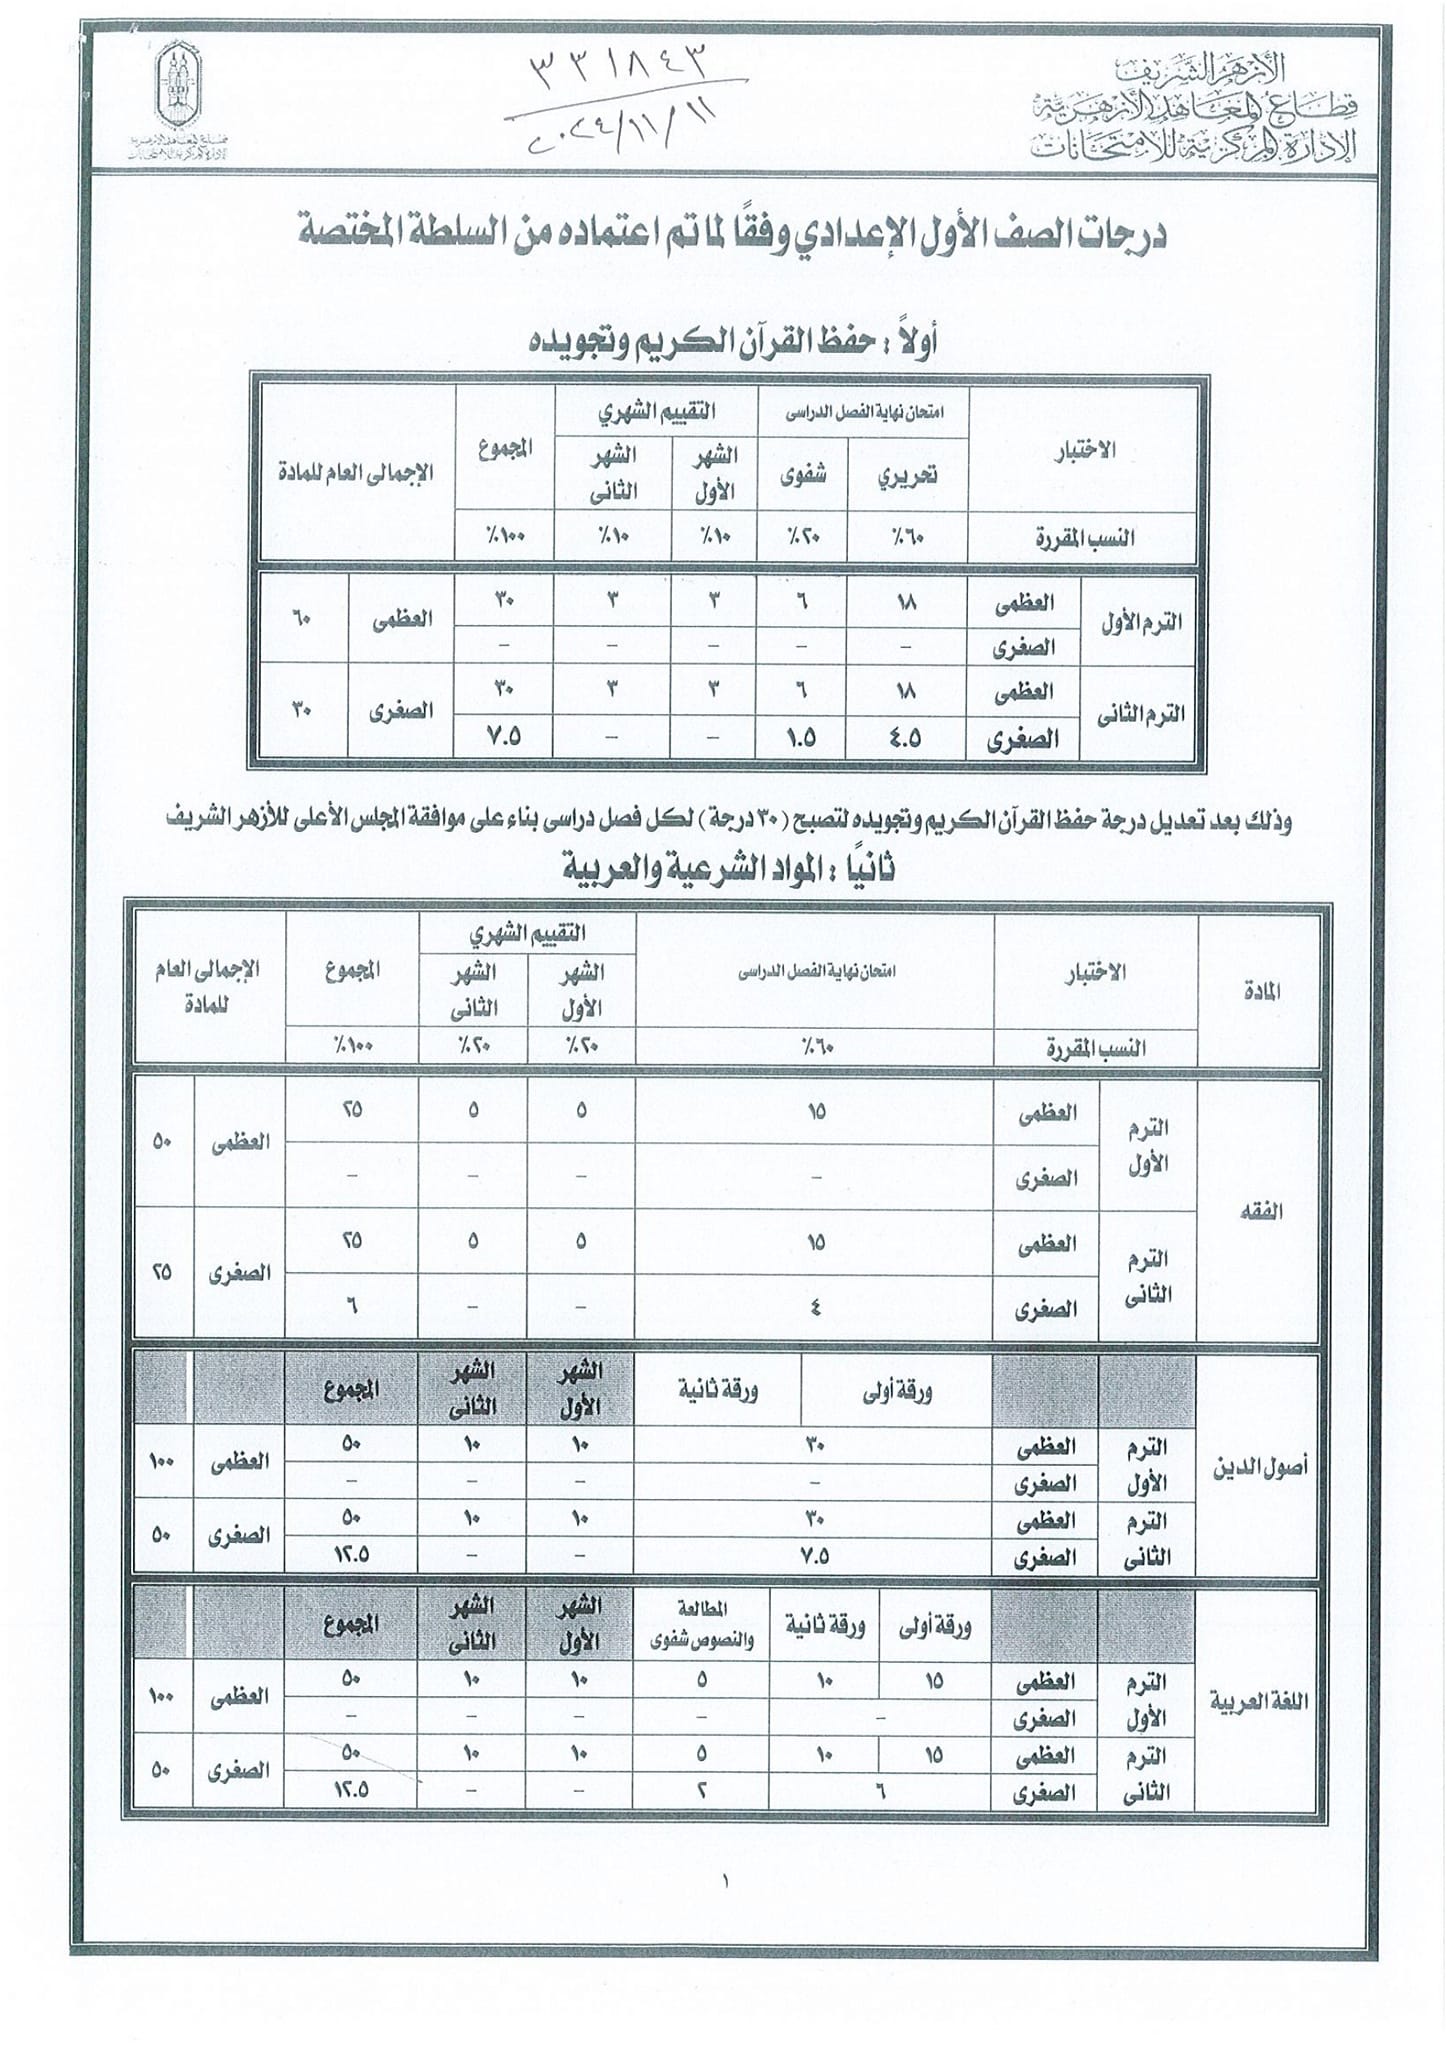 الأزهر الشريف
قطاع المعاهد الأزهرية
الإدارة المركزية للامتحانات
٣٣١٨٤٣
٢٠٢٤/١١/١١
قطاع المعاهد الأزهرية
الإدارة المركزية للامتحانات
درجات الصف الأول الإعدادي وفقًا لما تم اعتماده من السلطة المختصة
أولاً : حفظ القرآن الكريم وتجويده
الاختبار امتحان نهاية الفصل الدراسى التقييم الشهري المجموع الإجمالى العام للمادة
تحريري شفوى الشهر الأول الشهر الثانى
النسب المقررة ٦٠٪ ٢٠٪ ١٠٪ ١٠٪ ١٠٠٪
الترم الأول العظمى ١٨ ٦ ٣ ٣ ٣٠ العظمى ٦٠
الصغرى – – – – –
الترم الثانى العظمى ١٨ ٦ ٣ ٣ ٣٠ الصغرى ٣٠
الصغرى ٤.٥ ١.٥ – – ٧.٥
وذلك بعد تعديل درجة حفظ القرآن الكريم وتجويده لتصبح (٣٠ درجة) لكل فصل دراسى بناء على موافقة المجلس الأعلى للأزهر الشريف
ثانيًا : المواد الشرعية والعربية
المادة الاختبار امتحان نهاية الفصل الدراسى التقييم الشهري المجموع الإجمالى العام للمادة
الشهر الأول الشهر الثانى
النسب المقررة ٦٠٪ ٢٠٪ ٢٠٪ ١٠٠٪
الفقه الترم الأول العظمى ١٥ ٥ ٥ ٢٥ العظمى ٥٠
الصغرى – – – –
الترم الثانى العظمى ١٥ ٥ ٥ ٢٥ الصغرى ٢٥
الصغرى ٤ – – ٦
أصول الدين ورقة أولى ورقة ثانية الشهر الأول الشهر الثانى المجموع
الترم الأول العظمى ٣٠ ١٠ ١٠ ٥٠ العظمى ١٠٠
الصغرى – – – –
الترم الثانى العظمى ٣٠ ١٠ ١٠ ٥٠ الصغرى ٥٠
الصغرى ٧.٥ – – ١٢.٥
اللغة العربية ورقة أولى ورقة ثانية المطالعة والنصوص شفوى الشهر الأول الشهر الثانى المجموع
الترم الأول العظمى ١٥ ١٠ ٥ ١٠ ١٠ ٥٠ العظمى ١٠٠
الصغرى – – – – –
الترم الثانى العظمى ١٥ ١٠ ٥ ١٠ ١٠ ٥٠ الصغرى ٥٠
الصغرى ٦ ٢ – – ١٢.٥
١